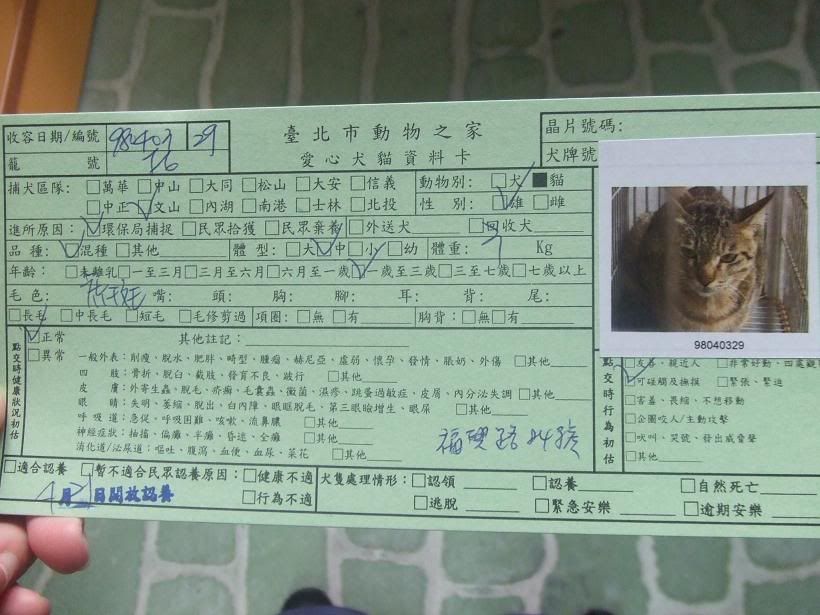 收容日期/編號 980403 29 臺北市動物之家 晶片號碼:
籠 號 愛心犬貓資料卡 犬牌號
捕犬區隊: □萬華 □中山 □大同 □松山 □大安 □信義 動物別: □犬 ■貓
□中正 □文山 □內湖 □南港 □士林 □北投 性 別: □雄 □雌
進所原因: □環保局捕捉 □民眾拾獲 □民眾棄養 □外送犬 □回收犬
品 種: □混種 □其他 體 型: □大 □中 □小 □幼 體重: Kg
年齡: □未離乳 □一至三月 □三月至六月 □六月至一歲 □一歲至三歲 □三至七歲 □七歲以上
毛 色: 嘴: 頭: 胸: 腳: 耳: 背: 尾:
□長毛 □中長毛 □短毛 □毛修剪過 項圈: □無 □有 胸背: □無 □有
98040329
點交時健康狀況初估
□正常 其他註記:
□異常 一般外表: 削瘦、脫水、肥胖、畸型、腫瘤、赫尼亞、虛弱、懷孕、發情、脹奶、外傷 □其他
四 肢: 骨折、脫臼、截肢、發育不良、跛行 □其他
皮 膚: 外寄生蟲、脫毛、疥癬、毛囊蟲、黴菌、濕疹、跳蚤過敏症、皮屑、內分泌失調 □其他
眼 睛: 失明、萎縮、脫出、白內障、眼眶脫毛、第三眼瞼增生、眼屎 □其他
呼吸道: 急促、呼吸困難、咳嗽、流鼻膿 □其他
神經症狀: 抽搐、偏癱、半癱、昏迷、全癱 □其他
消化道/泌尿道: 嘔吐、腹瀉、血便、血尿、菜花 □其他
福興路24號
點交時行為初估
□友善、親近人 □非常好動、四處觀
□可碰觸及撫摸 □緊張、緊迫
□害羞、畏縮、不想移動
□企圖咬人/主動攻擊
□吠叫、哭號、發出威脅聲
□其他
□適合認養 □暫不適合民眾認養原因: □健康不適 犬隻處理情形: □認領 □認養 □自然死亡
4月21日開放認養 □行為不適 □逃脫 □緊急安樂 □逾期安樂